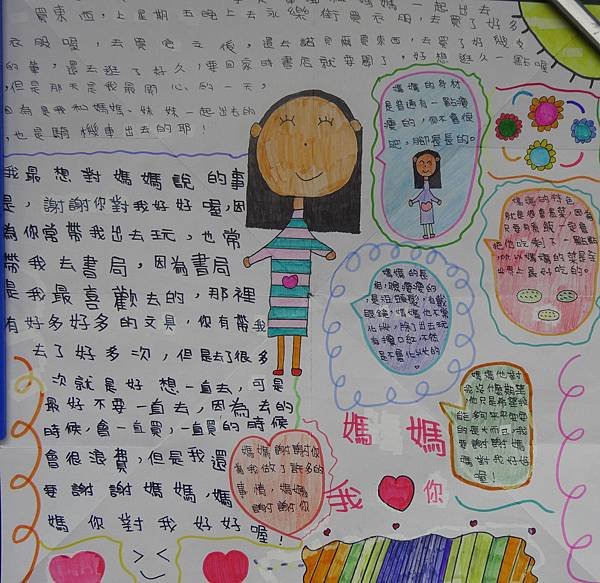 買東西，上星期五晚上去永樂街買衣服，去買了好多
衣服喔，去買完之後，還去諾貝爾買東西，去買了好幾支
的筆，還去逛了好久，要回家時書店就要關了，好想逛久一點喔
，但是那天是我最開心的一天，
因為是我和媽媽、妹妹一起出去的
，也是騎機車出去的耶！
我最想對媽媽說的事
是，謝謝你對我好好喔，因
為你常帶我出去玩，也常
帶我去書局，因為書局
是我最喜歡去的，那裡
有好多好多的文具，你有帶我
去了好多次，但是去了很多
次就是好想一直去，可是
最好不要一直去，因為去的
時候，會一直買，一直買的時候
會很浪費，但是我還
要謝謝媽媽，媽
媽你對我好好喔！
媽媽的身材
是普通有一點瘦
瘦的，但不會很
肥，腳長長的。
媽媽的特色
就是很會煮菜，因為
只要有煮飯一定會
把他吃剩下一點點
，所以媽媽的菜是全
世界上最好吃的。
媽媽的長
相，眼睛瘦瘦的
，是短頭髮，有戴
眼鏡，媽媽他不常
化妝，除了出去玩
有擦口紅，不然
是不會化妝的
媽媽他對
我沒什麼期望
，他只是希望我
能多可平平安安
的長大而已，我
要謝謝媽
媽對我好好
喔！
媽媽謝謝你
為我做了許多的
事情，媽媽
謝謝你
媽媽
我你